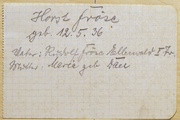 Horst Fröse
geb. 12.5.36
Vater: Rudolf Fröse Ellerwald I Tr
Mutter: Maria geb. Däu